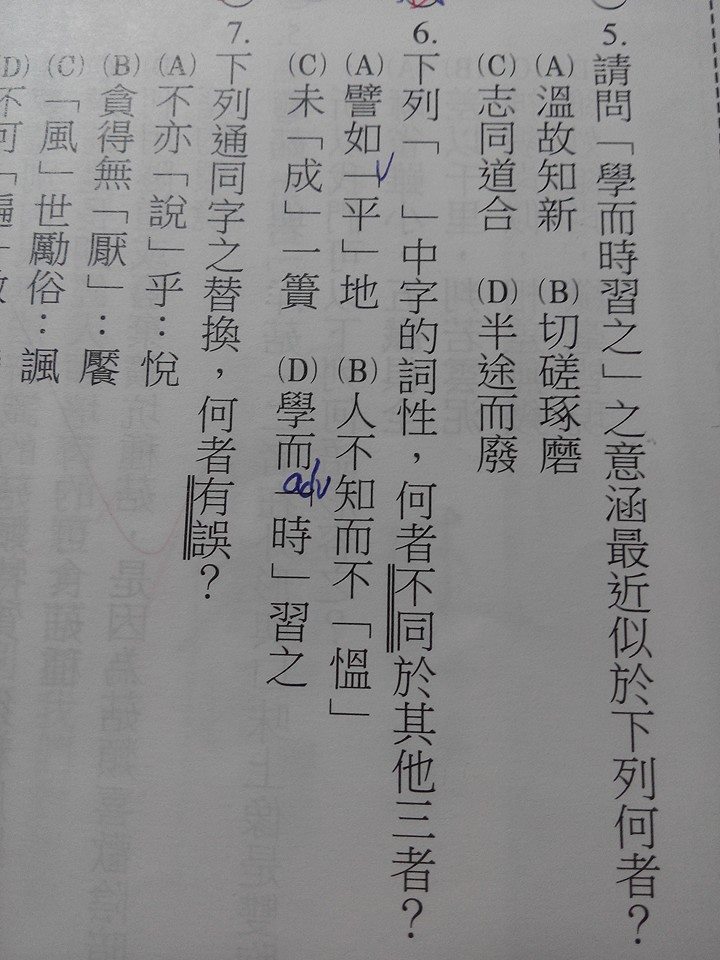 5. 請問「學而時習之」之意涵最近似於下列何者？
(A) 溫故知新 (B) 切磋琢磨
(C) 志同道合 (D) 半途而廢
6. 下列「 」中字的詞性，何者不同於其他三者？
(A) 譬如「平」地 (B) 人不知而不「慍」
v
(C) 未「成」一簣 (D) 學而「時」習之
adv
7. 下列通同字之替換，何者有誤？
(A) 不亦「說」乎：悅
(B) 貪得無「厭」：饜
(C) 「風」世勵俗：諷
(D) 不可「遍」